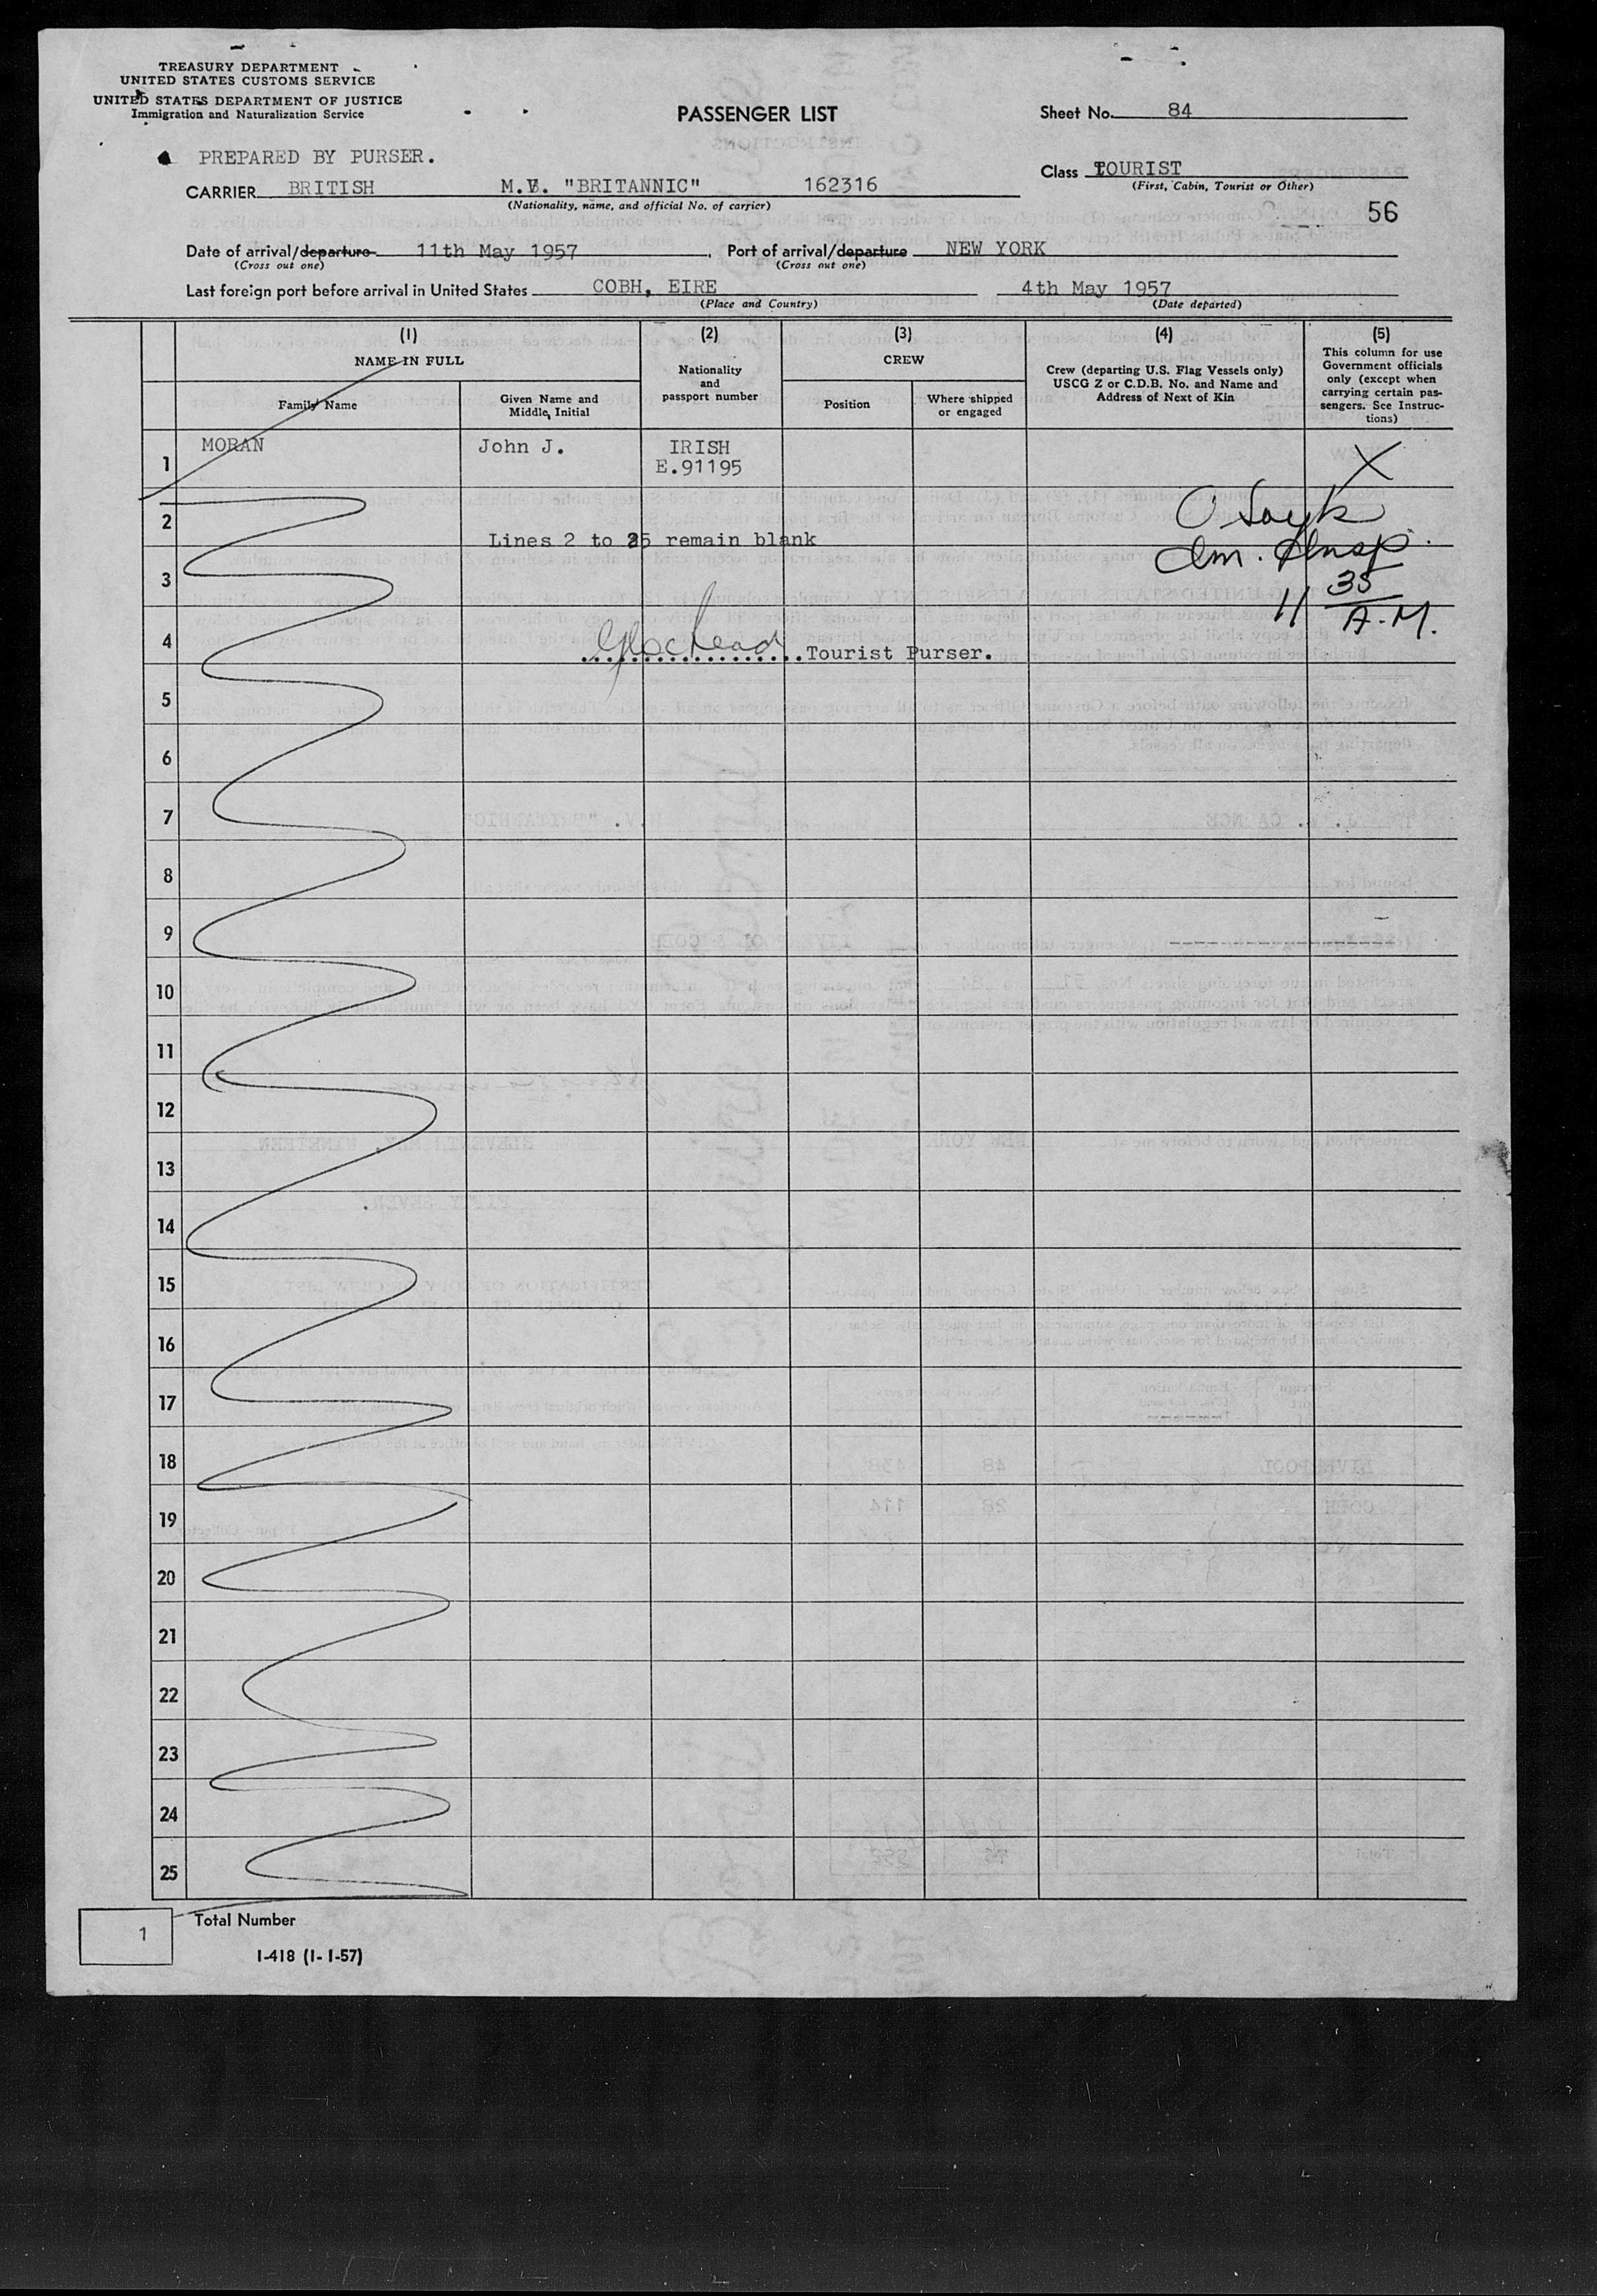 TREASURY DEPARTMENT
UNITED STATES CUSTOMS SERVICE
UNITED STATES DEPARTMENT OF JUSTICE
Immigration and Naturalization Service
PASSENGER LIST
Sheet No. 84
PREPARED BY PURSER.
Class TOURIST
(First, Cabin, Tourist or Other)
CARRIER BRITISH M.V. "BRITANNIC" 162316
(Nationality, name, and official No. of carrier)
56
Date of arrival/departure 11th May 1957. Port of arrival/departure NEW YORK
(Cross out one) (Cross out one)
Last foreign port before arrival in United States COBH, EIRE 4th May 1957
(Place and Country) (Date departed)
(1) (2) (3) (4) (5)
NAME IN FULL
Family Name
Given Name and
Middle Initial
Nationality
and
passport number
CREW
Position
Where shipped
or engaged
Crew (departing U.S. Flag Vessels only)
USCG Z or C.D.B. No. and Name and
Address of Next of Kin
This column for use
Government officials
only (except when
carrying certain pas-
sengers. See Instruc-
tions)
1 MORAN John J. IRISH X
E.91195
2
Lines 2 to 25 remain blank
Im. Insp.
3
11 35
A.M.
4
Tourist Purser.
5
6
7
8
9
10
11
12
13
14
15
16
17
18
19
20
21
22
23
24
25
1 Total Number
I-418 (1-1-57)